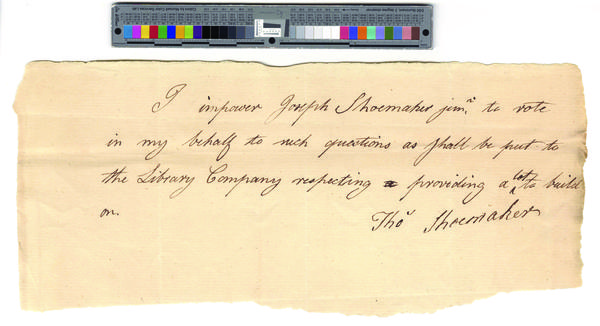 I impower Joseph Shoemaker junr. to vote
in my behalf to such questions as shall be put to
the Library Company respecting a providing a lot to build
on.
Thos Shoemaker